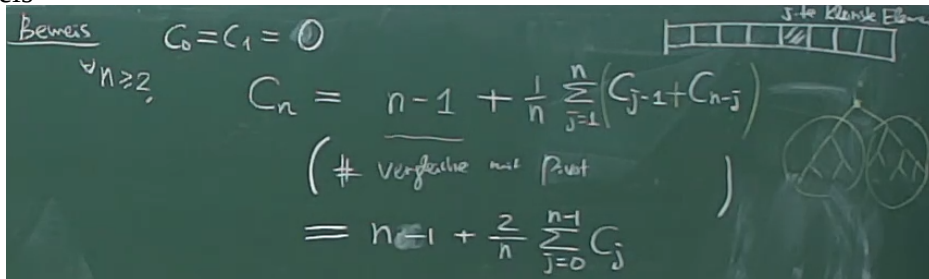 Beweis
C₀ = C₁ = 0
j-te kleinste Elem
∀n≥2.
Cₙ = n-1 + 1/n ∑_{j=1}^{n} (C_{j-1} + C_{n-j})
(# Vergleiche mit Pivot)
= n-1 + 2/n ∑_{j=0}^{n-1} C_j